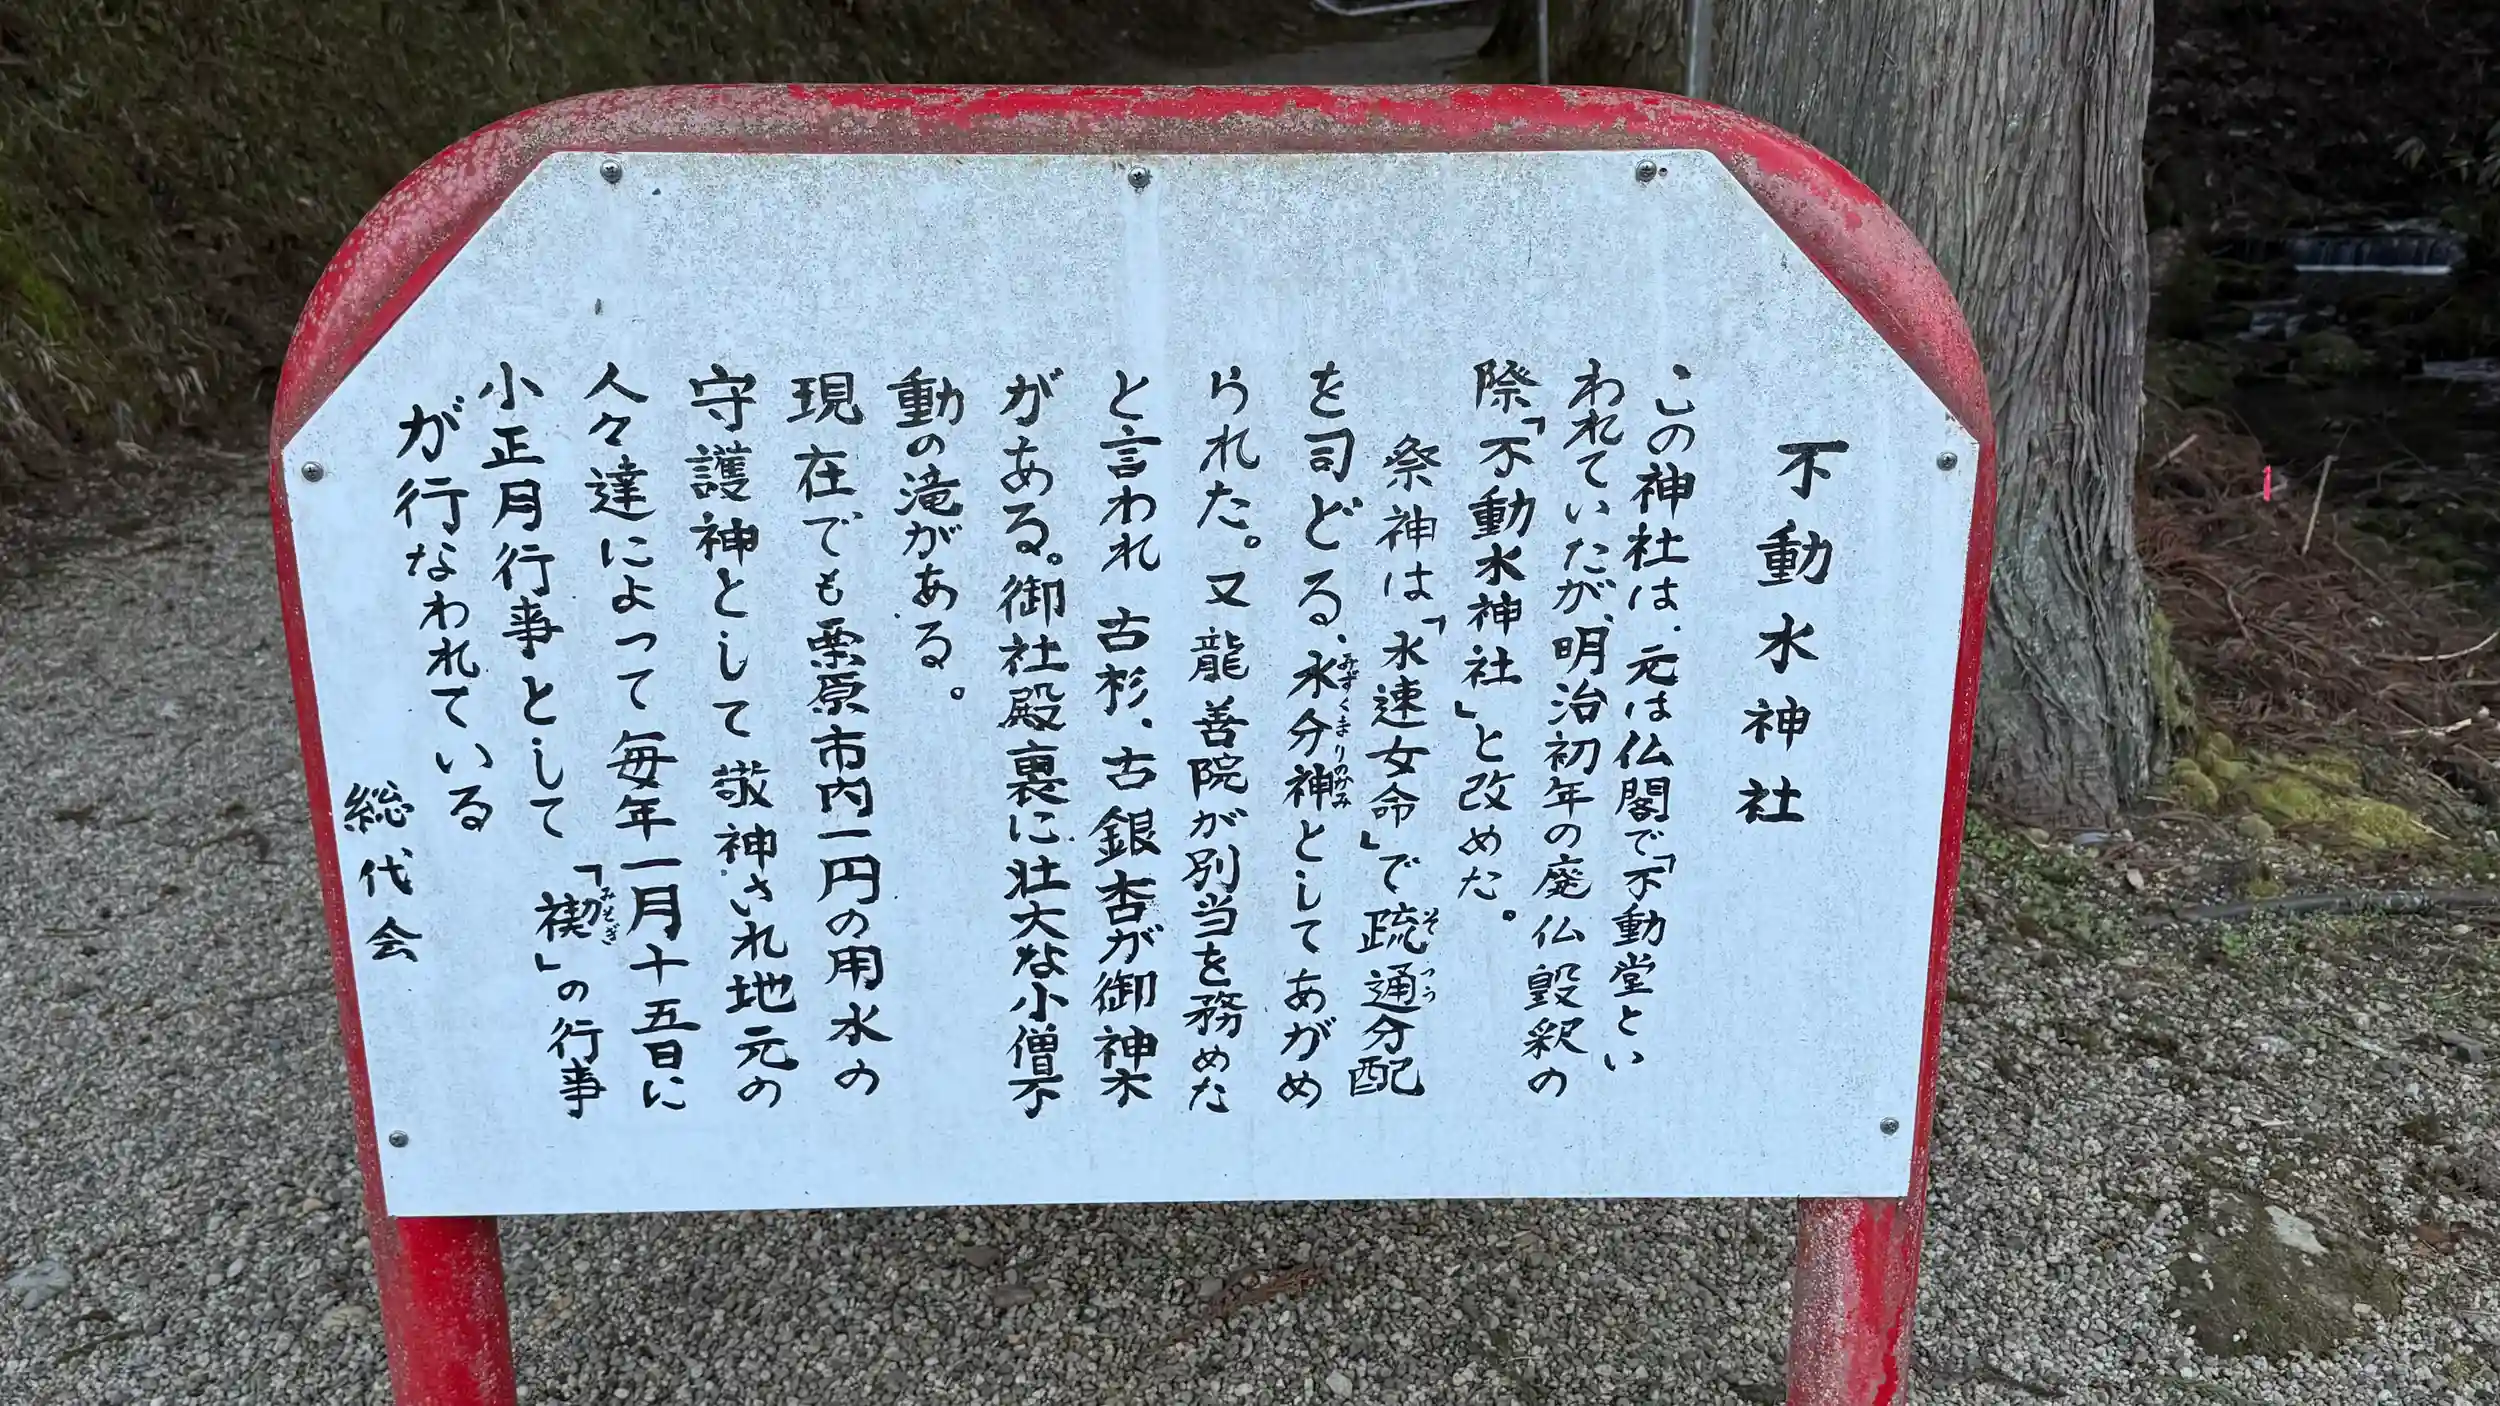 不動水神社
この神社は、元は仏閣で「不動堂とい
われていたが、明治初年の廃仏毀釈の
際「不動水神社」と改めた。
祭神は「水速女命」で疏通分配
そ つう
を司どる、水分神としてあがめ
みずくまりのかみ
られた。又龍善院が別当を務めた
と言われ 古杉、古銀杏が御神木
がある。御社殿裏に壮大な小僧不
動の滝がある。
現在でも栗原市内一円の用水の
守護神として敬神され地元の
人々達によって毎年一月十五日に
小正月行事として「禊」の行事
みそぎ
が行なわれている
総代会